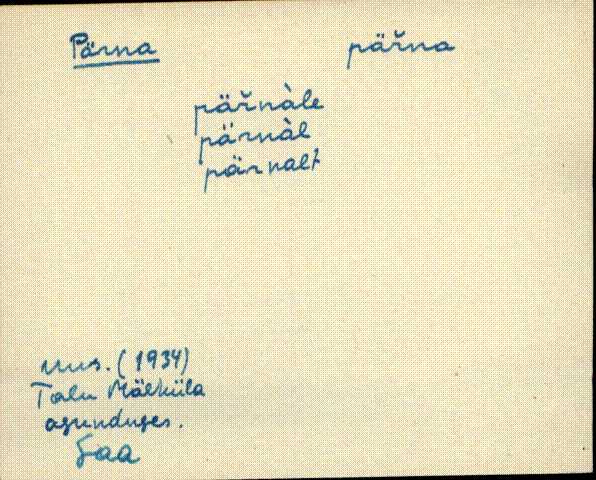 Pärna päřna
päřnàle
pärnàl
pärnalt
uus. (1934)
Talu Mäeküla
asunduses.
Saa